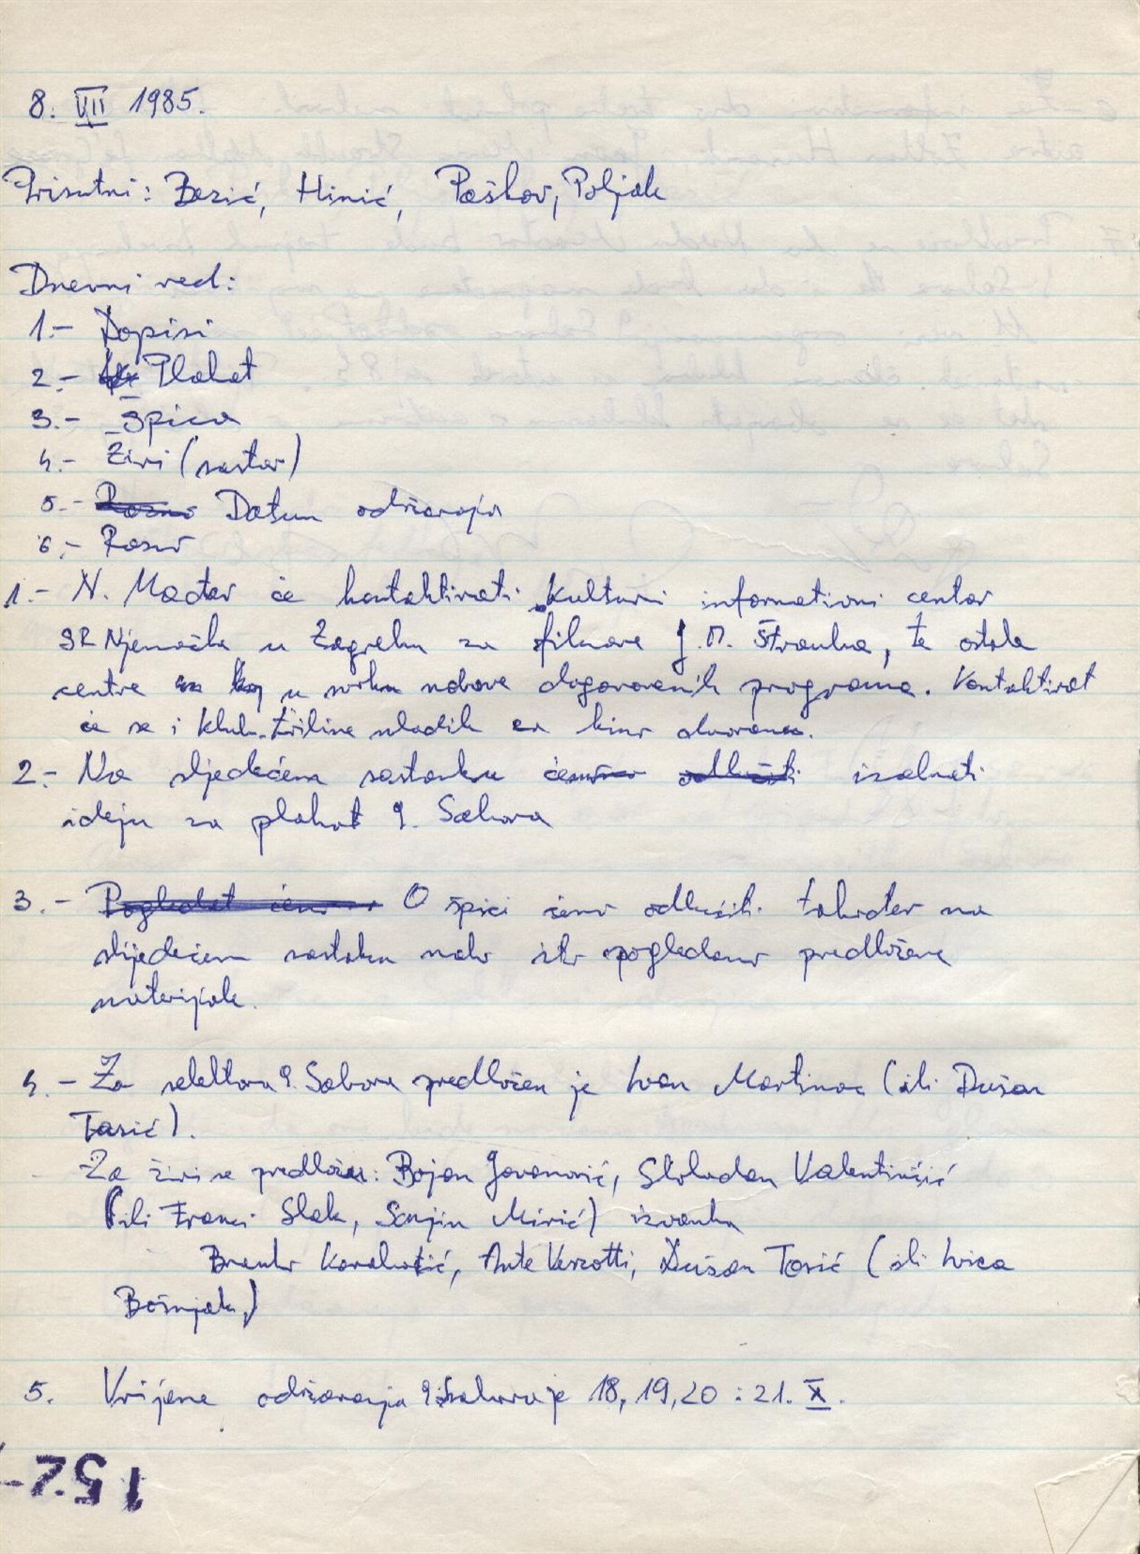 8. VII 1985.
Prisutni: Bezić, Hinić, Paškov, Poljak
Dnevni red:
1.- Dopisi
2.- Plakat
3.- Špica
4.- Žiri (sastav)
5.- Razno Datum održavanja
6.- Razno
1.- N. Mađer će kontaktirati Kulturni informativni centar
SR Njemačke u Zagrebu za filmove J. M. Štrauba, te ostale
centre u svrhu nabave dogovorenih programa. Kontaktirat
će se i klub tribine mladih za kino dvoranu.
2.- Na sljedećem sastanku ćemo odlučiti izabrati
ideju za plakat 9. Sabora
3.- Pogledat ćemo O špici ćemo odlučiti također na
slijedećem sastaku nakon što pogledamo predložene
materijale.
4.- Za selektora 9. Sabora predložen je Ivan Martinac (ili Dušan
Tasić).
Za žiri se predlažu: Bojan Jovanović, Slobodan Valentinčić
(ili Franci Slak, Sanjin Mirić) izvan
Branko Karabatić, Ante Verzotti, Dušan Tasić (ili Ivica
Bošnjak)
5. Vrijeme održavanja 9. Sabora je 18, 19, 20 i 21. X.
152-